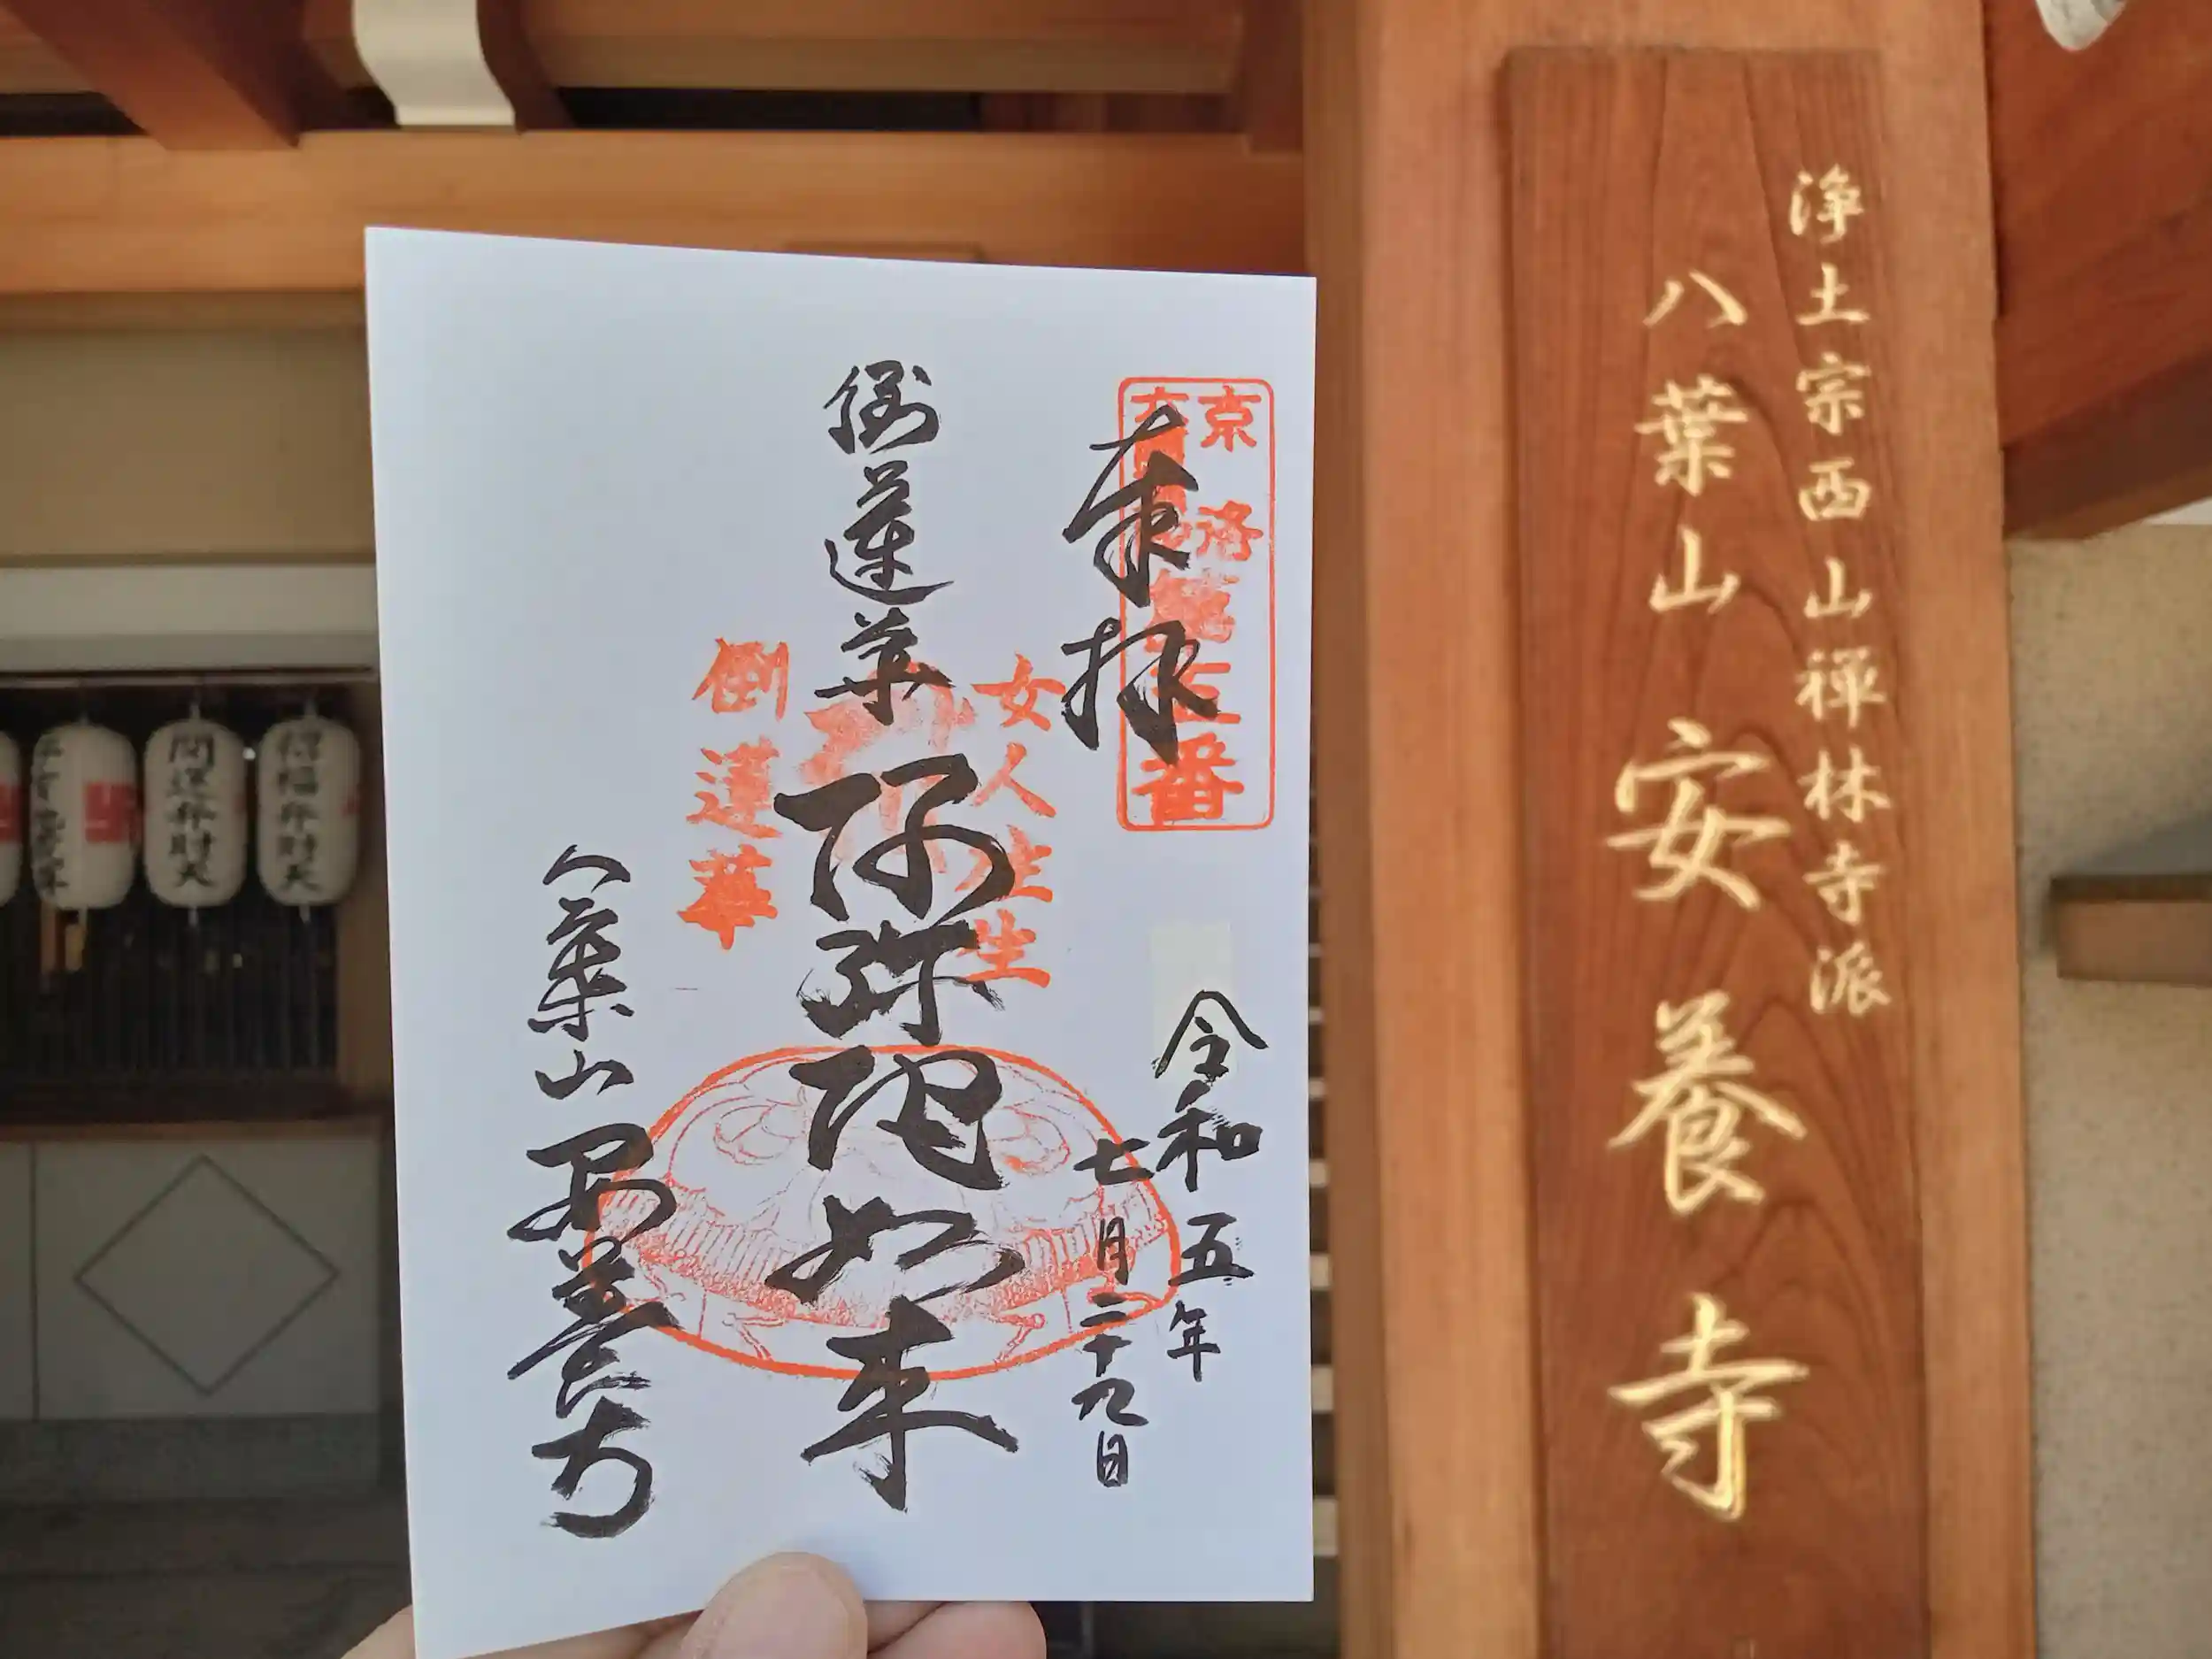 浄土宗西山禅林寺派
八葉山 安養寺
奉拝
令和五年
七月二十九日
女人往生
倒蓮華
阿弥陀如来
倒蓮華
八葉山 安養寺
招福弁財天
開運弁財天